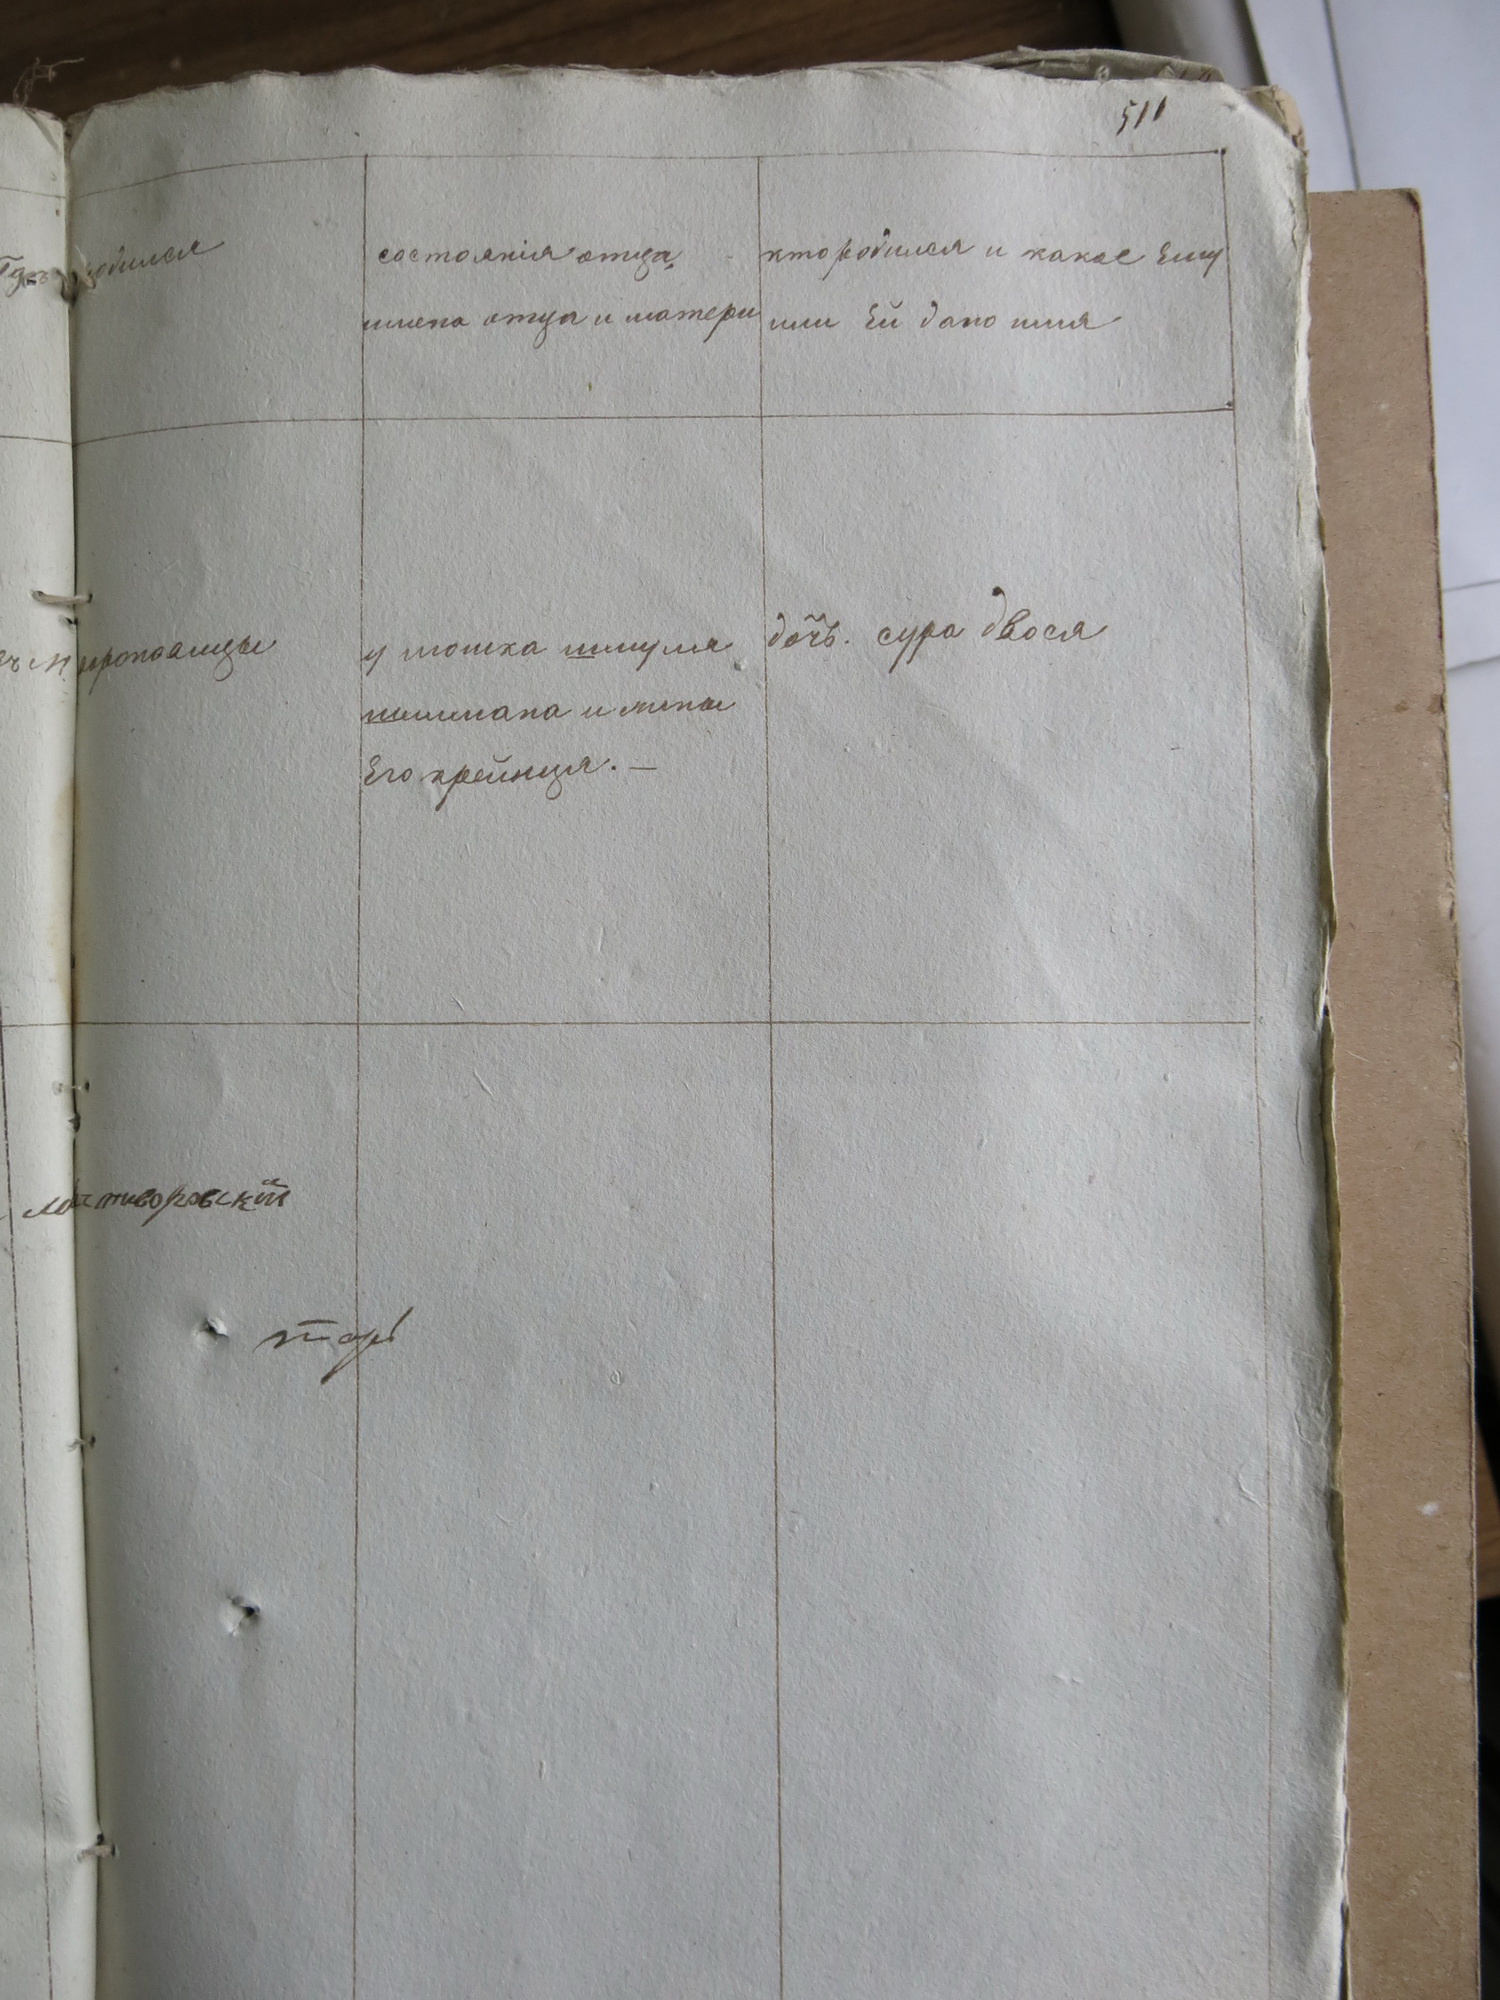 511
Гдѣ родился
состоянія отца
имена отца и матери
кто родился и какое Ему
или Ей дано имя
у мошка шмуля
шимона и жены
Его крейнця. —
дочь. сура двося